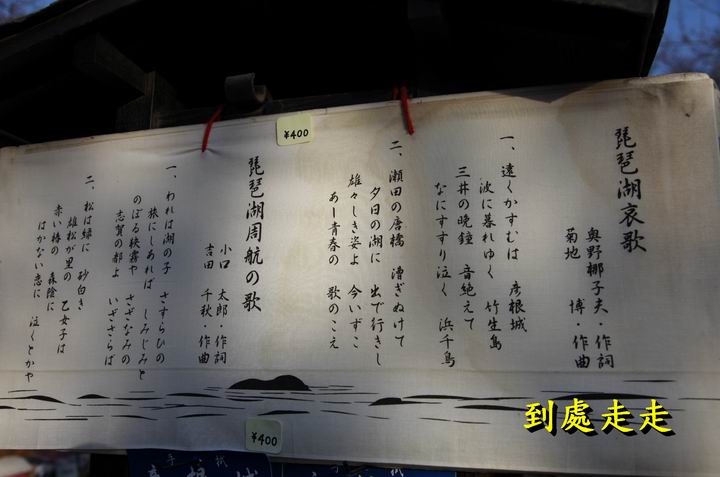 琵琶湖哀歌
奥野椰子夫・作詞
菊地 博・作曲
一、遠くかすむは 彦根城
波に暮れゆく 竹生島
三井の晩鐘 音絶えて
なにすすり泣く 浜千鳥
二、瀬田の唐橋 漕ぎぬけて
夕日の湖に 出で行きし
雄々しき姿よ 今いずこ
あー青春の 歌のこえ
琵琶湖周航の歌
小口 太郎・作詞
吉田 千秋・作曲
一、われは湖の子 さすらひの
旅にしあれば しみじみと
のぼる狭霧や さざなみの
志賀の都よ いざさらば
二、松は緑に 砂白き
雄松が里の 乙女子は
赤い椿の 森陰に
はかない恋に 泣くとかや
¥400
¥400
到處走走